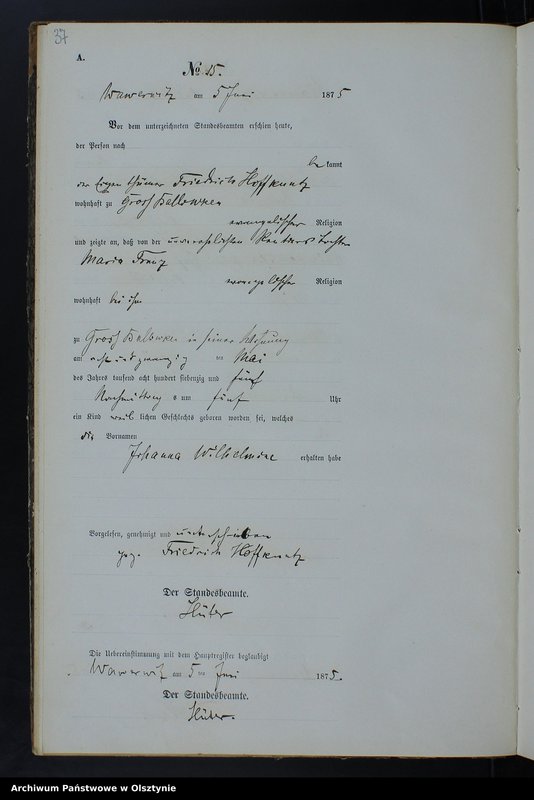 37
A.
No 15.
Wawerwitz am 5 Juni 1875
Vor dem unterzeichneten Standesbeamten erschien heute,
der Person nach
be kannt
der Eigenthümer Friedrich Hoffkuntz
wohnhaft zu Gross Ballowken
evangelischer Religion
und zeigte an, daß von der unverehelichten
Maria Franz
evangelischer Religion
wohnhaft bei ihm
zu Gross Ballowken in seiner Wohnung
am acht und zwanzig ten Mai
des Jahres tausend acht hundert siebenzig und fünf
Nachmittag s um fünf Uhr
ein Kind weib lichen Geschlechts geboren worden sei, welches
die Vornamen
Johanna Wilhelmine erhalten habe
Vorgelesen, genehmigt und unterschrieben
gez. Friedrich Hoffkuntz
Der Standesbeamte.
Hüter
Die Uebereinstimmung mit dem Hauptregister beglaubigt
Wawerwitz am 5 ten Juni 1875.
Der Standesbeamte.
Hüter.
Archiwum Państwowe w Olsztynie